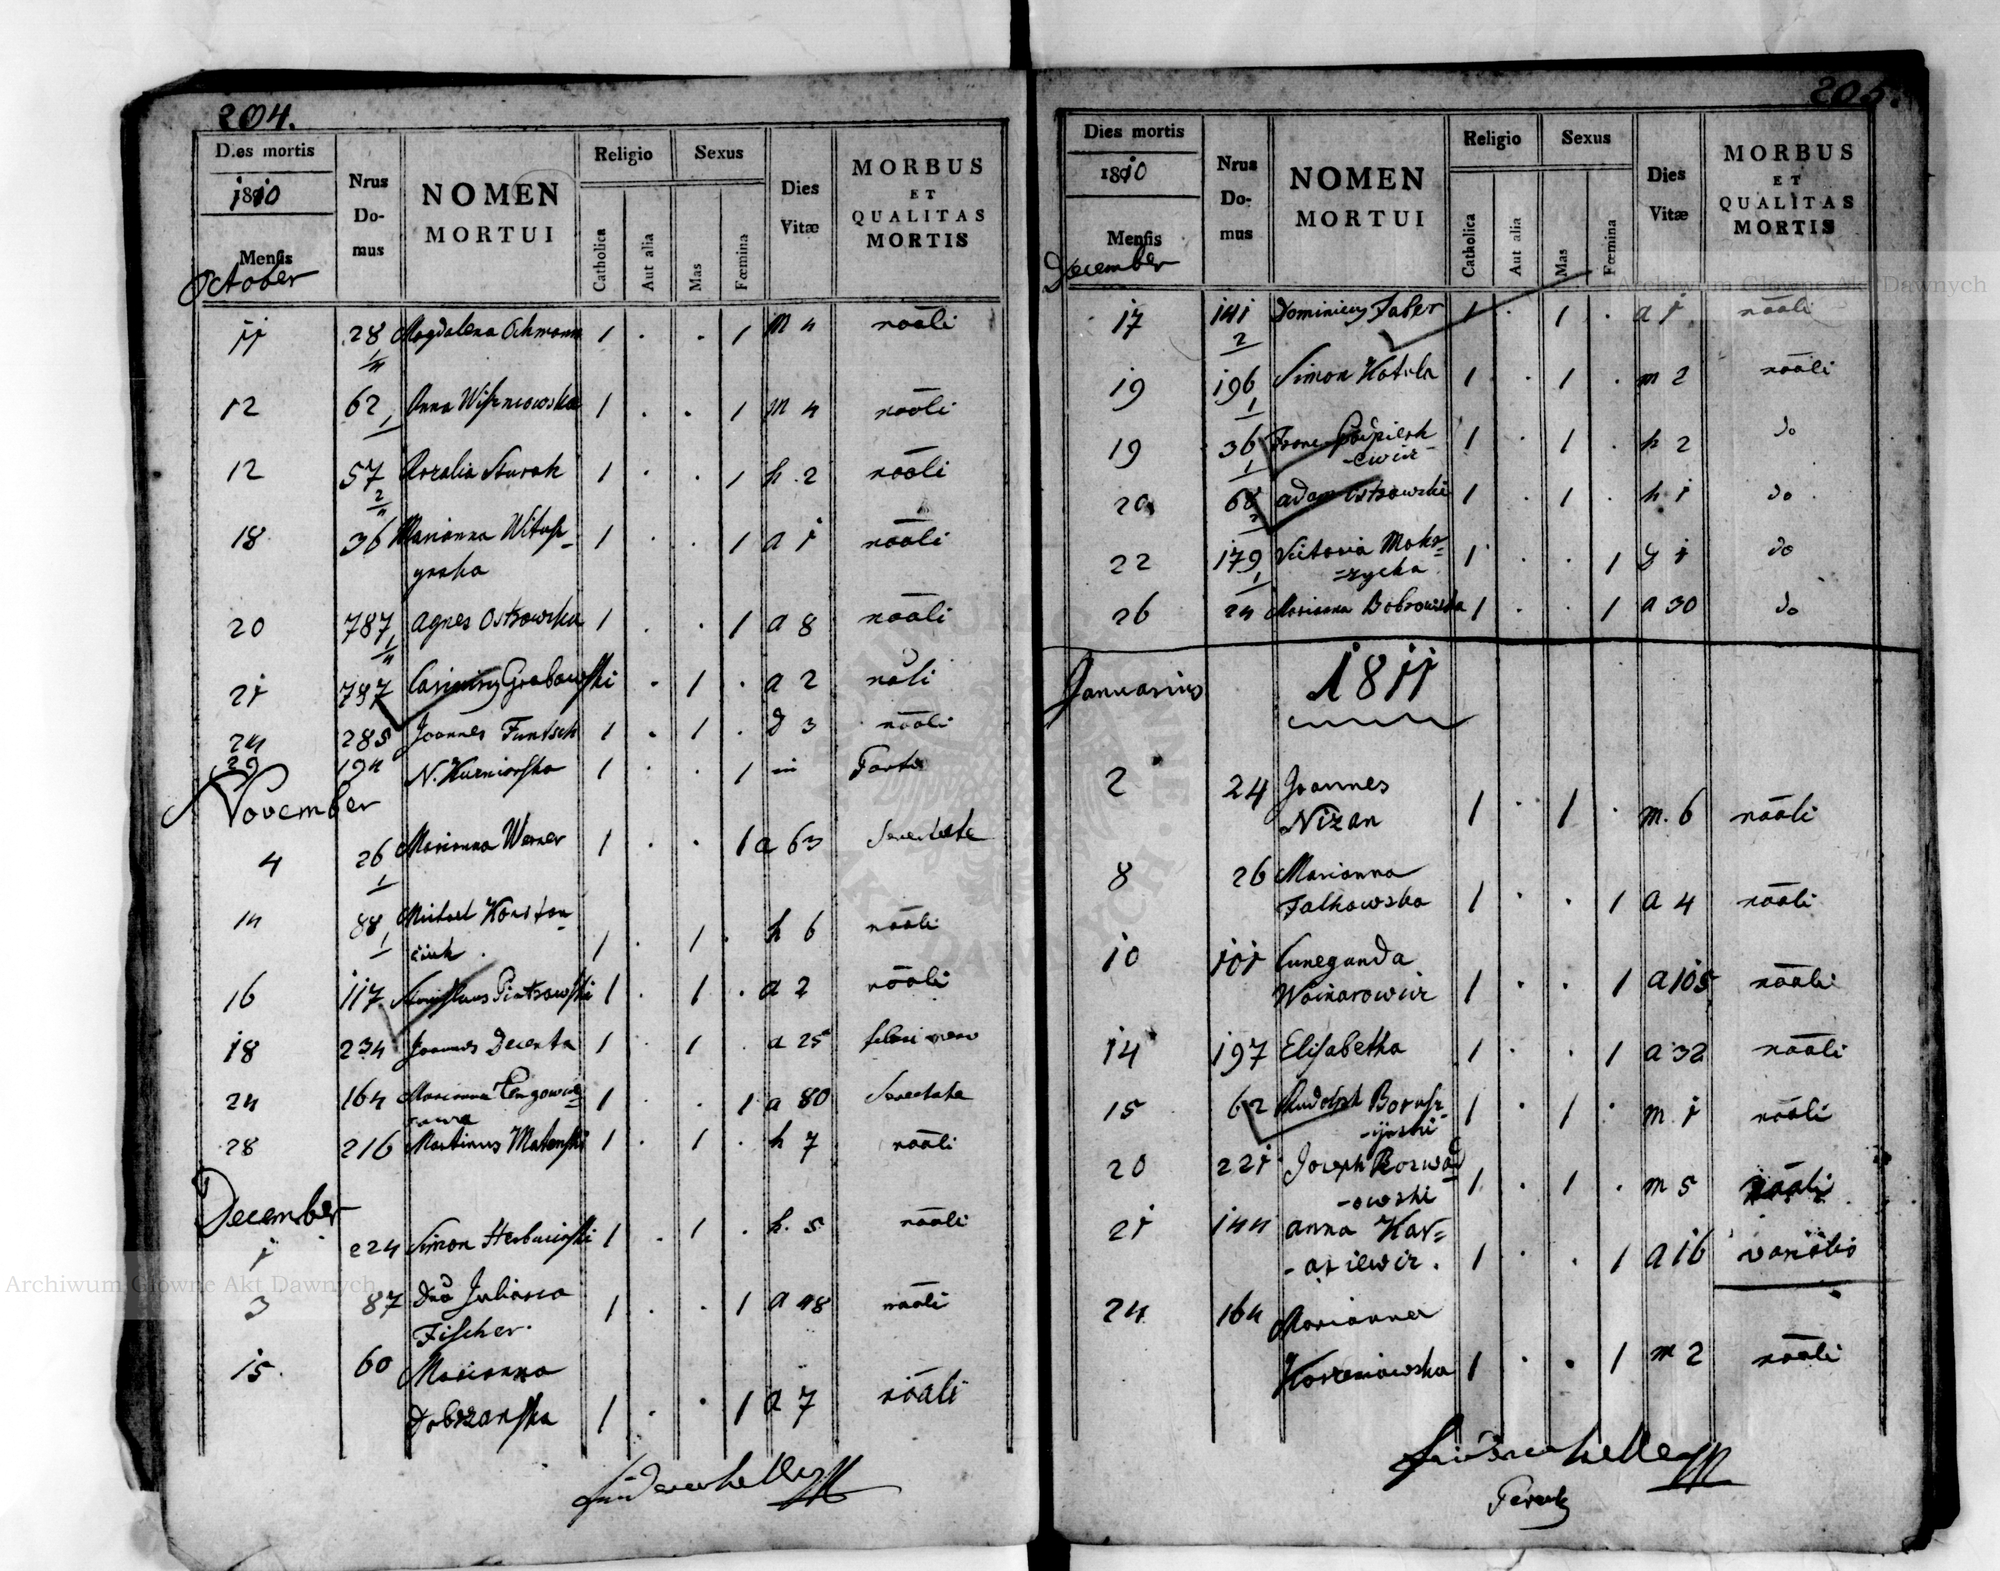 204.
Dies mortis
1810
Mensis
Nrus
Do-
mus
NOMEN
MORTUI
Religio
Catholica
Aut alia
Sexus
Mas
Fœmina
Dies
Vitæ
MORBUS
ET
QUALITAS
MORTIS
October
11 28 Magdalena Ochmann 1 . . 1 m 4 nāāli
12 62 Anna Wiszniowska 1 . . 1 m 4 nāāli
12 57 Rozalia Sturak 1 . . 1 h. 2 nāāli
18 36 Marianna Witosz-
ynska 1 . . 1 a 1 nāāli
20 787 Agnes Ostrowska 1 . . 1 a 8 nāāli
21 787 Casimirg Grabowski . 1 . a 2 nāli
24 285 Joannes Funtsch 1 . 1 . d 3 nāāli
29 194 N. Kurniorska 1 . . 1 in Partu
November
4 26 Marianna Werner 1 . . 1 a 63 Senectute
14 88 Michael Konstan-
1 . 1 . h 6 nāāli
16 117 Stanislaus Piotrowski 1 . 1 . a 2 nāāli
18 234 Joannes Decenta 1 . 1 . a 25
24 164 Marianna 1 . . 1 a 80 Senectute
28 216 Martinus Matenski 1 . 1 . h 7 nāāli
December
1 224 Simon Herburirski 1 . 1 . h. 5 nāāli
3 87 Dna Julianna
Fischer. 1 . . 1 a 48 nāāli
15. 60 Marianna
Dobrzanska 1 . . 1 a 7 nāāli
205.
Dies mortis
1810
Mensis
Nrus
Do-
mus
NOMEN
MORTUI
Religio
Catholica
Aut alia
Sexus
Mas
Fœmina
Dies
Vitæ
MORBUS
ET
QUALITAS
MORTIS
December
17 141 Dominicus Faber 1 . 1 . a 1 nāāli
19 196 Simon Kotula 1 . 1 . m 2 nāāli
19 36 1 . 1 . h 2 do
20 68 Adam Ostrowski 1 . 1 . h 1 do
22 179 Victoria Mokr-
=zycka 1 . . 1 1 do
26 24 Marianna Bobrowska 1 . . 1 a 30 do
1811
Januarius
2 24 Joannes
Nizan 1 . 1 . m. 6 nāāli
8 26 Marianna
Falkowska 1 . . 1 a 4 nāāli
10 101 Cunegunda
Woinarowicz 1 . . 1 a 105 nāāli
14 197 Elisabetha 1 . . 1 a 32 nāāli
15 62 Rudolph 1 . 1 . m 1 nāāli
20 221 Joseph Rozwad
-owski 1 . 1 . m 5 nāāli
21 144 Anna Kar=
1 . . 1 a 16 variolis
24 164 Marianna
Korzeniowska 1 . . 1 m 2 nāāli
Archiwum Główne Akt Dawnych
Archiwum Główne Akt Dawnych